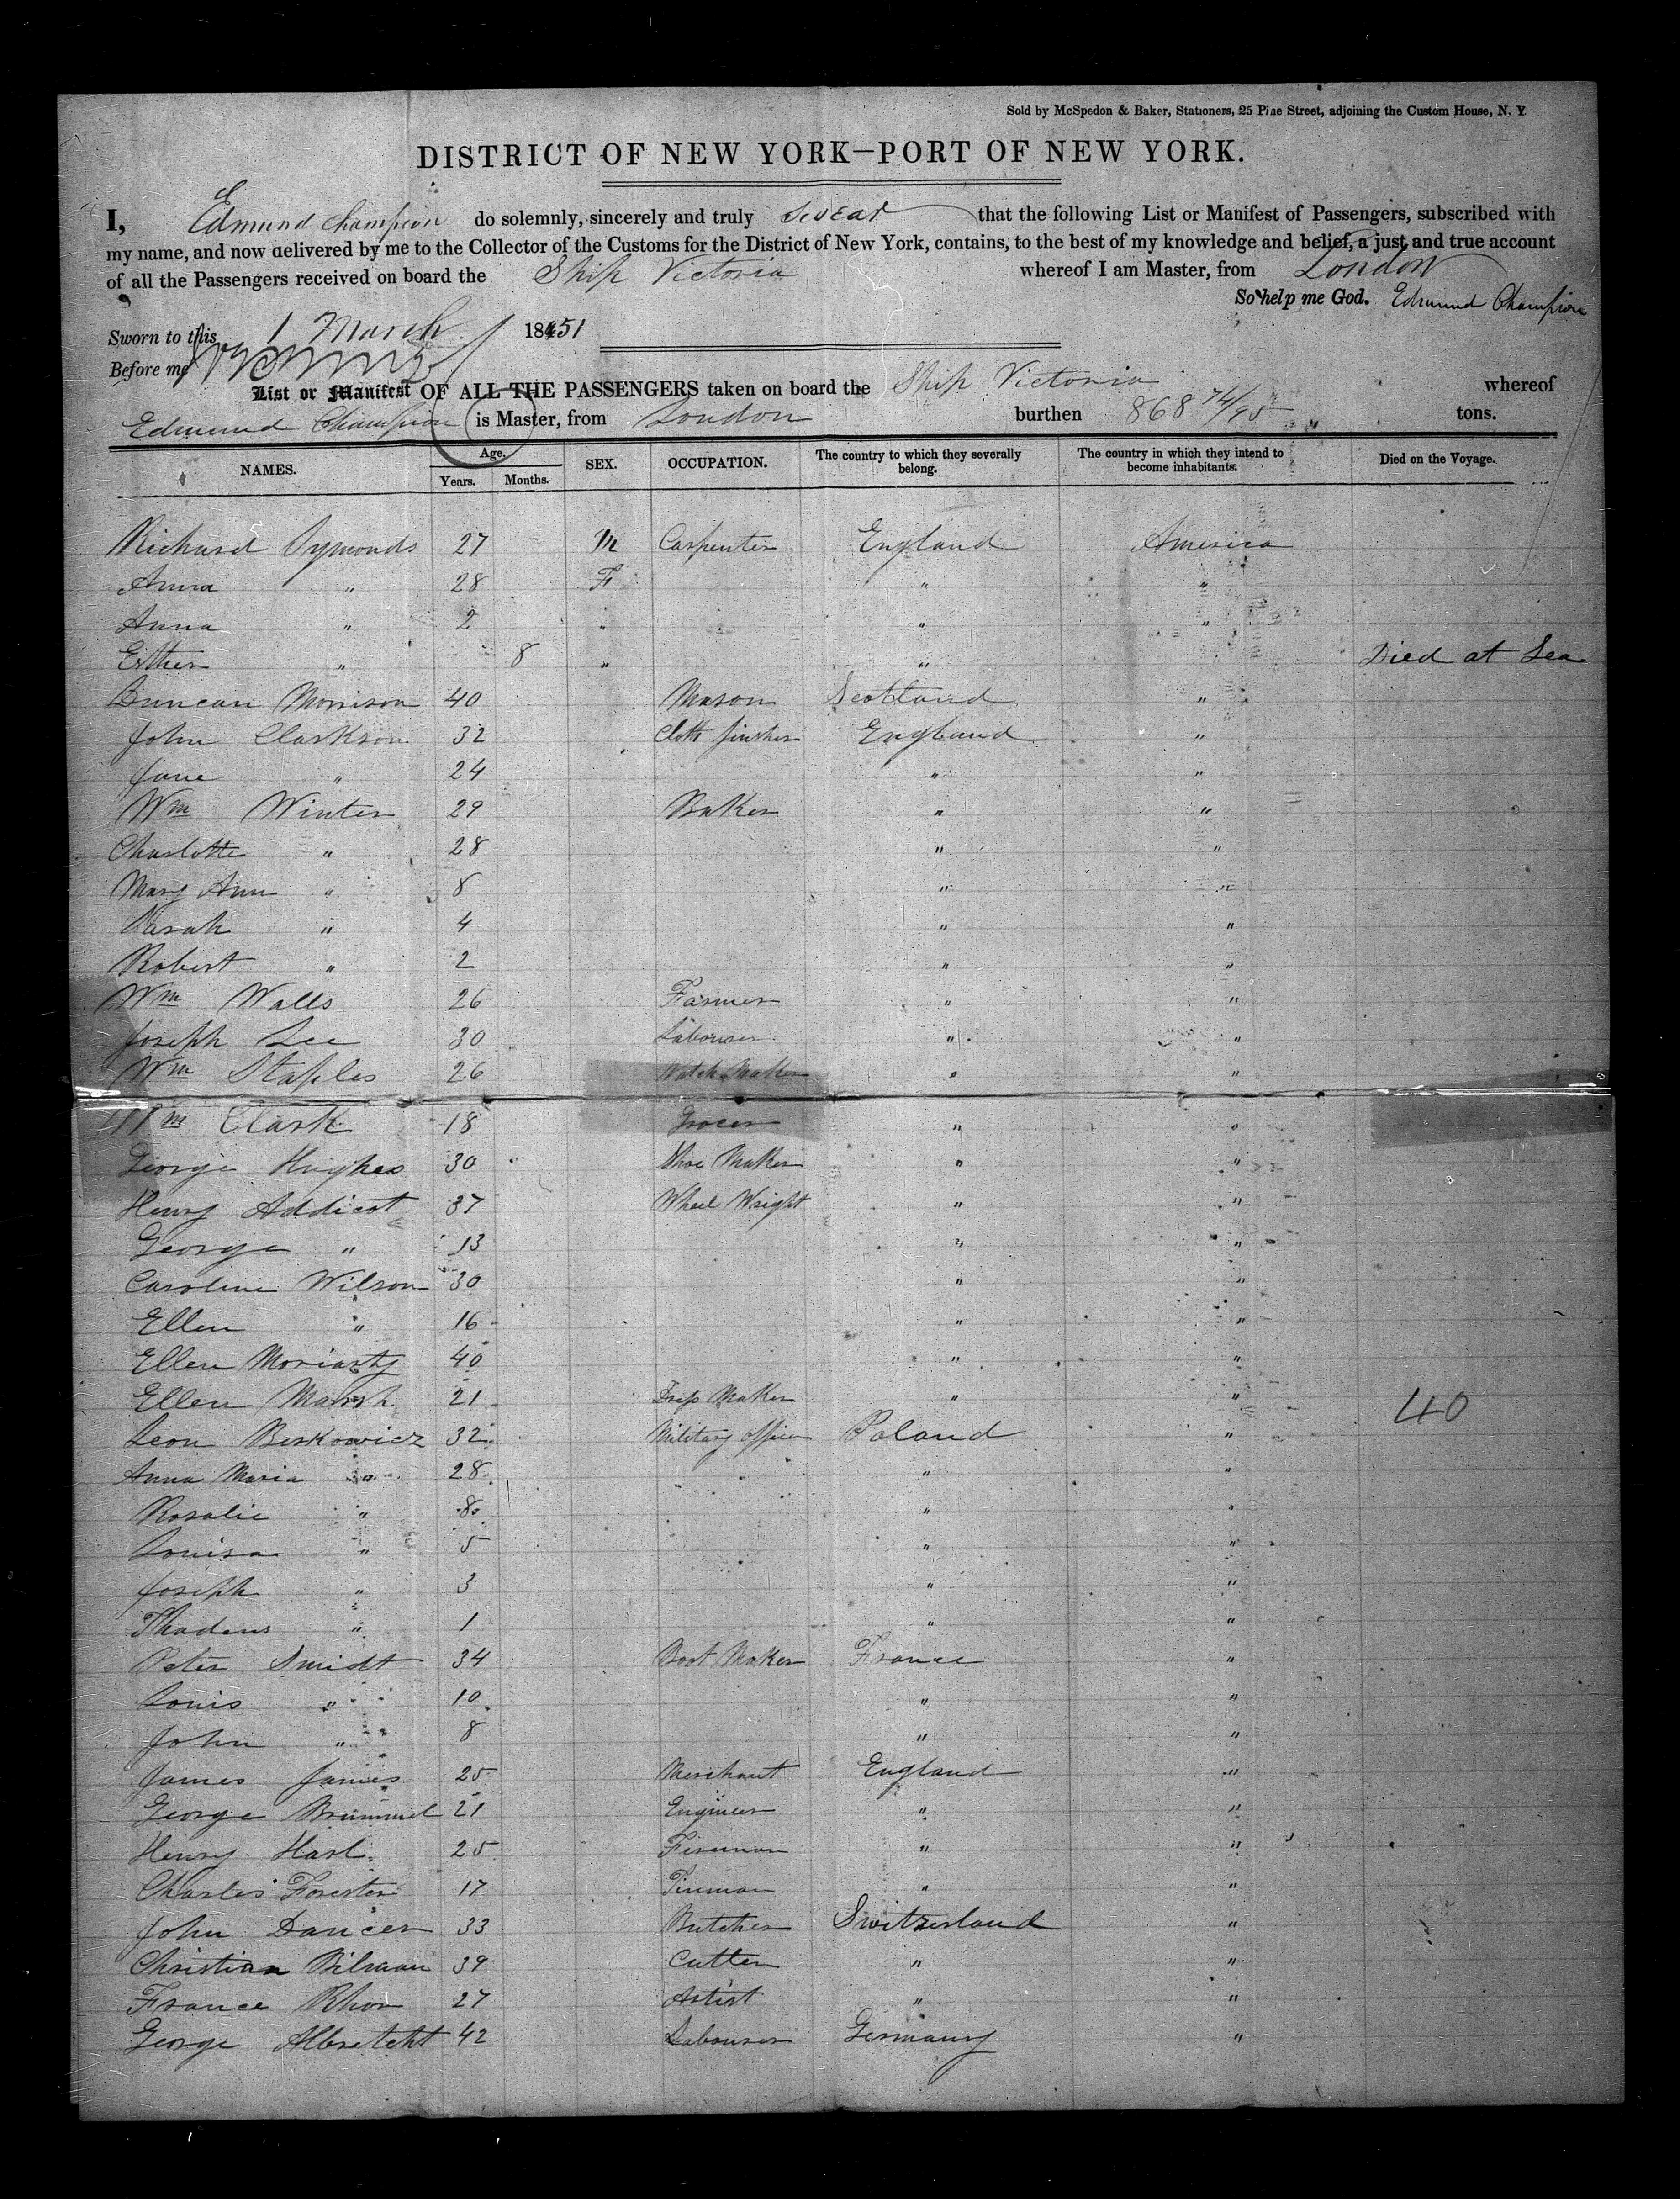 Sold by McSpedon & Baker, Stationers, 25 Pine Street, adjoining the Custom House, N. Y.
DISTRICT OF NEW YORK—PORT OF NEW YORK.
I, Edmund Champion do solemnly, sincerely and truly swear that the following List or Manifest of Passengers, subscribed with
my name, and now delivered by me to the Collector of the Customs for the District of New York, contains, to the best of my knowledge and belief, a just and true account
of all the Passengers received on board the Ship Victoria whereof I am Master, from London
So help me God. Edmund Champion
Sworn to this 1 March 1851
Before me
List or Manifest OF ALL THE PASSENGERS taken on board the Ship Victoria whereof
Edmund Champion is Master, from London burthen 868 74/95 tons.
NAMES. Age. Years. Months. SEX. OCCUPATION. The country to which they severally belong. The country in which they intend to become inhabitants. Died on the Voyage.
Richard Symonds 27 M Carpenter England America
Anna " 28 F " "
Anna " 2 " " "
Esther " 8 " " Died at Sea
Duncan Morrison 40 Mason Scotland "
John Clarkson 32 Cloth finsher England "
Jane " 24 " "
Wm Winter 29 Baker " "
Charlotte " 28 " "
Mary Ann " 8 " "
Sarah " 4 " "
Robert " 2 " "
Wm Walls 26 Farmer " "
Joseph Lee 30 Labourer " "
Wm Staples 26 Watch Maker " "
Wm Clark 18 Grocer " "
George Hughes 30 Shoe Maker " "
Henry Addicot 37 Wheel Wright " "
George " 13 " "
Caroline Wilson 30 " "
Ellen " 16 " "
Ellen Moriarty 40 " "
Ellen Marsh 21 Dress Maker " "
40
Leon Beskowicz 32 Military officer Poland "
Anna Maria " 28 " "
Rosalie " 8 " "
Louisa " 5 " "
Joseph " 3 " "
Thadeus " 1 " "
Peter Smidt 34 Boot Maker France "
Louis " 10 " "
John " 8 " "
James James 25 Merchant England "
George Brummel 21 Engineer " "
Henry 25 Fireman " "
Charles Forester 17 " "
John Dancer 33 Butcher Switzerland "
Christian 39 Cutler " "
France Rhor 27 Artist " "
George Albretcht 42 Labourer Germany "